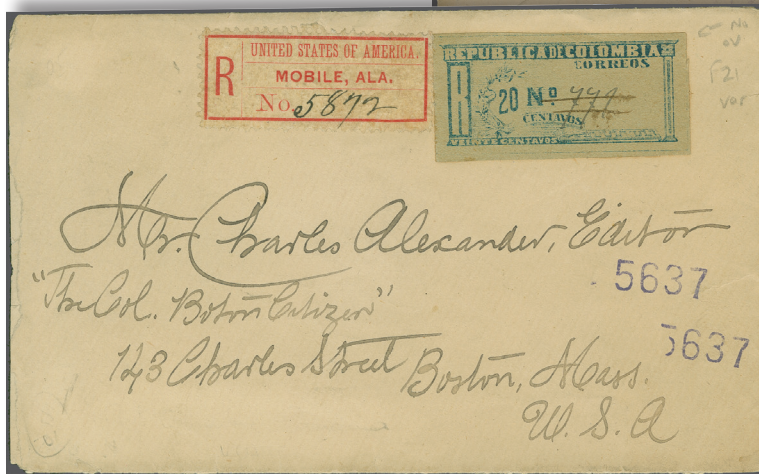 UNITED STATES OF AMERICA.
R
MOBILE, ALA.
No. 5872
REPUBLICA DE COLOMBIA
CORREOS
R
20 No
CENTAVOS
VEINTE CENTAVOS
No
OV
F21
var
Mr. Charles Alexander, Editor
"The Col. Boton Citizen"
143 Charles Street Boston, Mass.
U. S. A
5637
5637